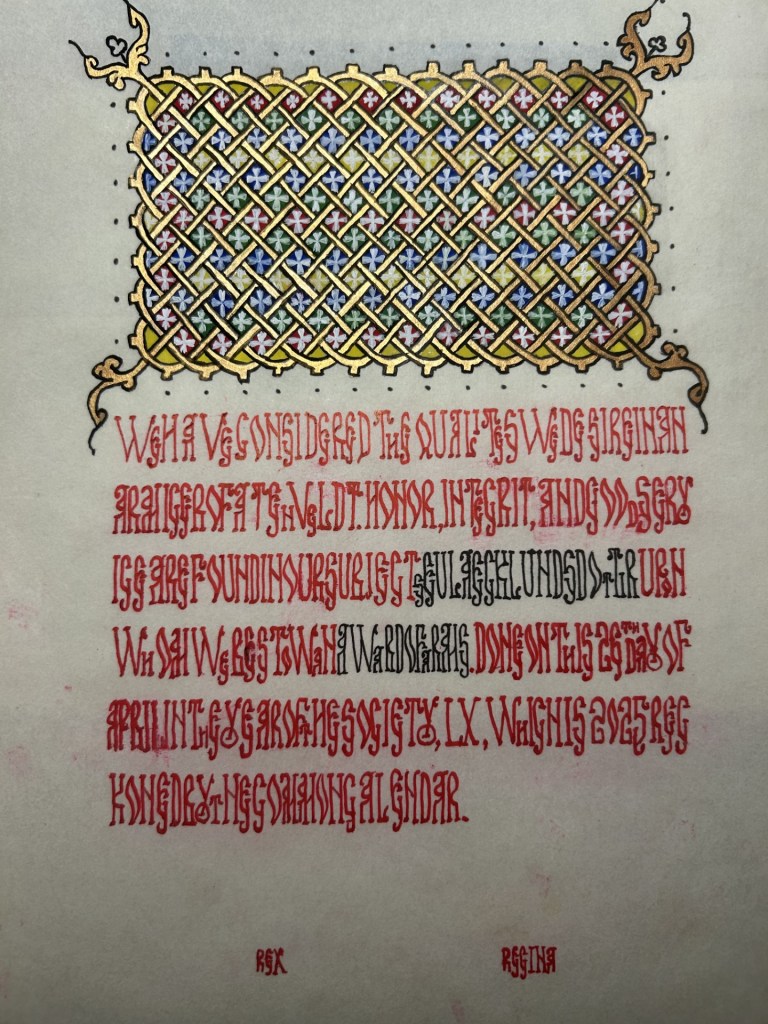 WE HAVE CONSIDERED THE QUALITES WE DESIRE IN AN
ARANGER OF ATENVELDT. HONOR, INTEGRIT, AND GOOD SERV
ICE ARE FOUND IN OUR SUBJECT
WHOM WE BESTOW AN AWARD OF ARMS. DONE ON THIS 26TH DAY OF
APRIL IN THE YEAR OF THE SOCIETY, LX, WHICH IS 2025 REC
KONED BY THE COMMON CALENDAR.
REX REGINA